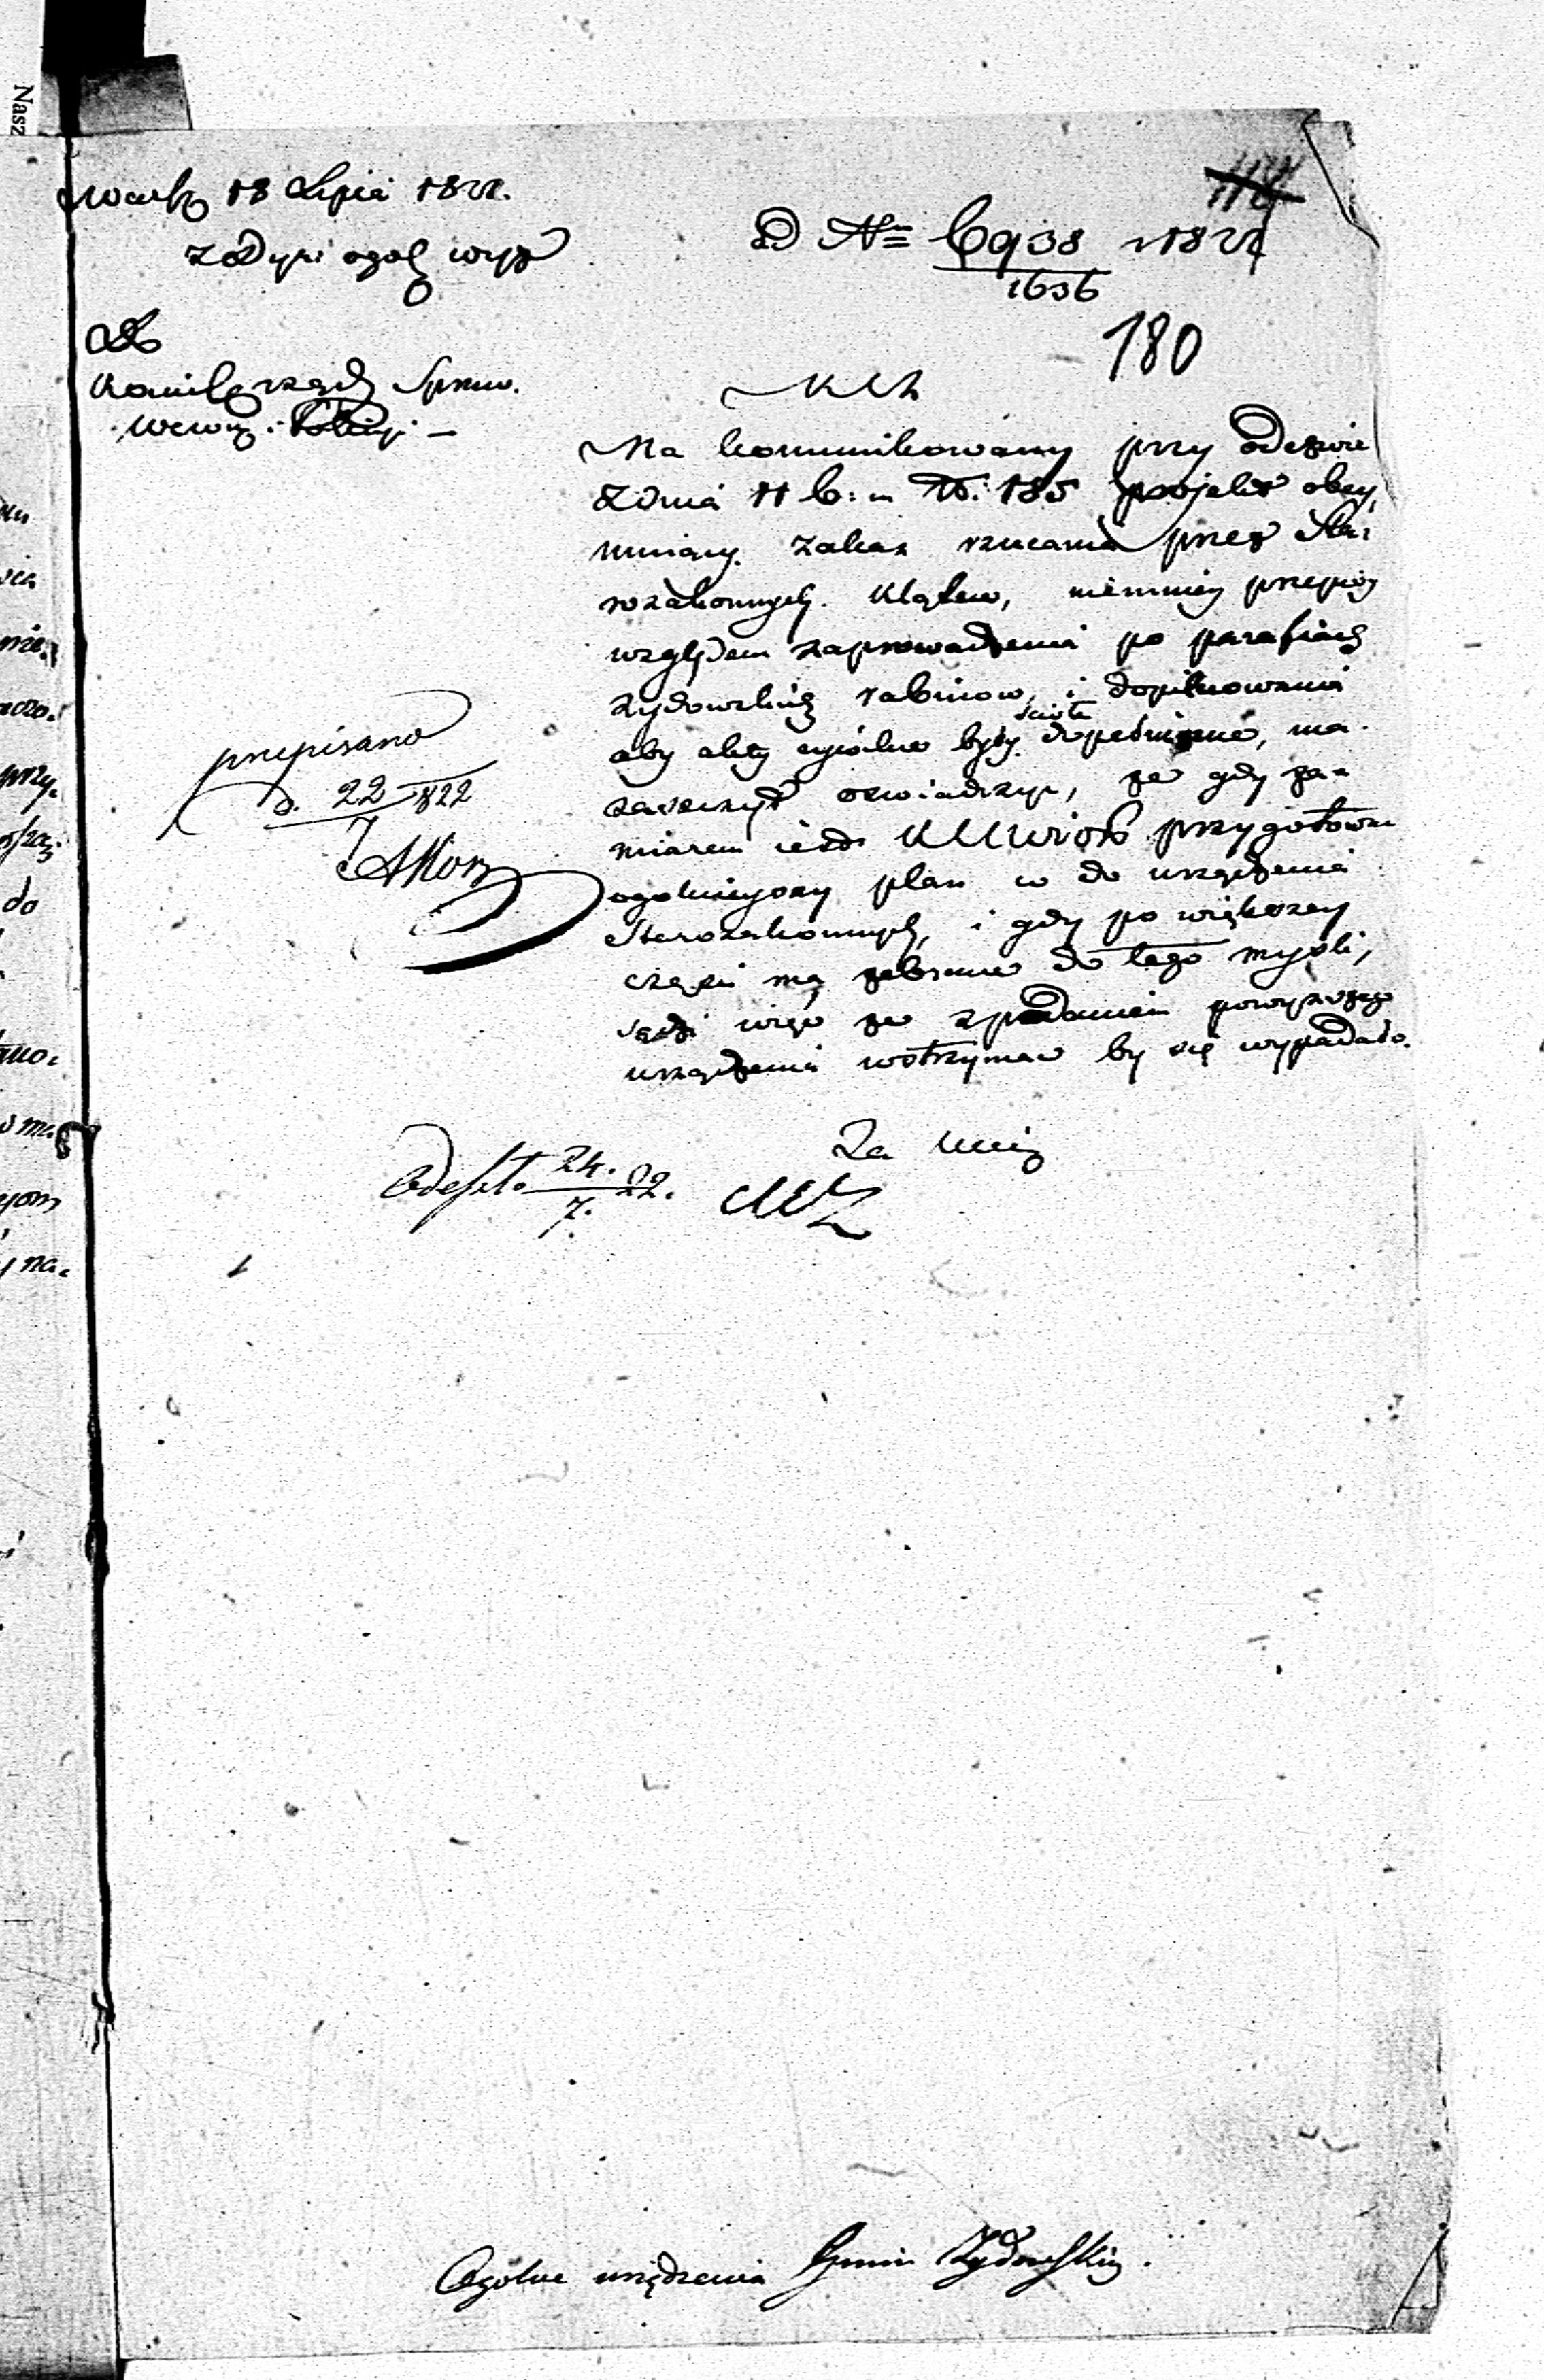 18 Lipca 1822.
z Dyr: ogol wyz
D Nr 6938 1822
1636
180
Do
Rządu Spraw.
Wewn: i Policyi –
Na kommunikowany przy odezwie
z Dnia 11 b: m N: 185 projekt obey
muiący zakaz rzucania przez Sta:
rozakonnych Klątew, niemniey przepisy
względem zaprowadzenia po parafiach
żydowskich rabinow, i dopilnowania
aby akta cywilne były ściśle dopełniane, ma
zaszczyt oswiadczyć, że gdy za-
miarem iest KRWiOP przygotować
ogolnieyszy plan do urządzenia
Starozakonnych, i gdy po większey
części ma zebrane do tego mysli,
sądzi więc że z podaniem powyższego
urządzenia wstrzymać by się wypadało.
przepisano
d. 22/7 822
Za Min
odeszło 24./7. 22.
Ogolne urządzenia Gmin Żydowskich.
Nasz
do